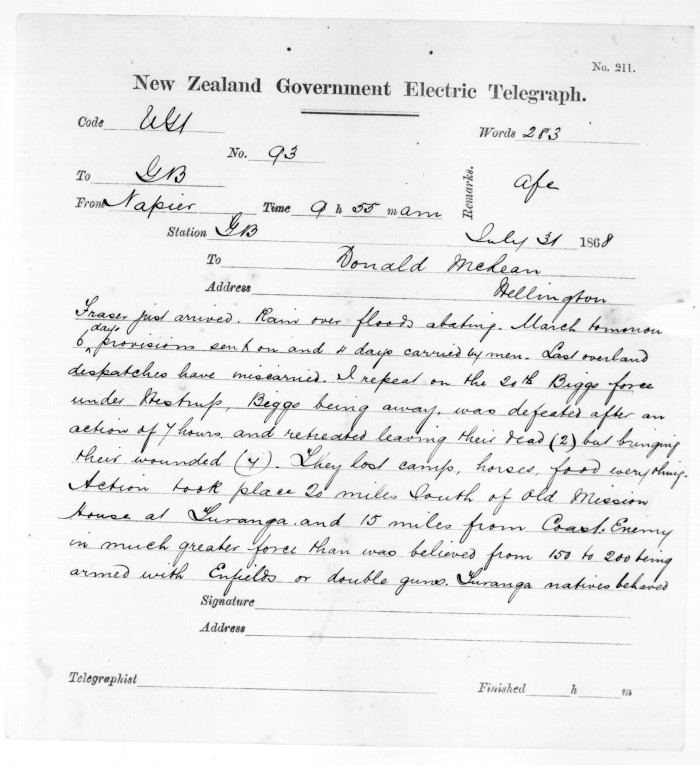 No. 211.
New Zealand Government Electric Telegraph.
Code
Words 283
No. 93
To GB
Remarks.
From Napier Time 9 h 55 m am
Station GB
July 31 1868
To Donald McLean
Address Wellington
Fraser just arrived. Rain over floods abating. March tomorrow
6 days provisions sent on and 4 days carried by men. Last overland
despatches have miscarried. I repeat on the 20th Biggs force
under Westrup, Beggs being away, was defeated after an
action of 7 hours and retreated leaving their dead (2) but bringing
their wounded (4). They lost camp, horses, food everything.
Action took place 20 miles South of Old Mission
House at Turanga and 15 miles from Coast. Enemy
in much greater force than was believed from 150 to 200 being
armed with Enfields or double guns. Turanga natives behaved
Signature
Address
Telegraphist
Finished h m